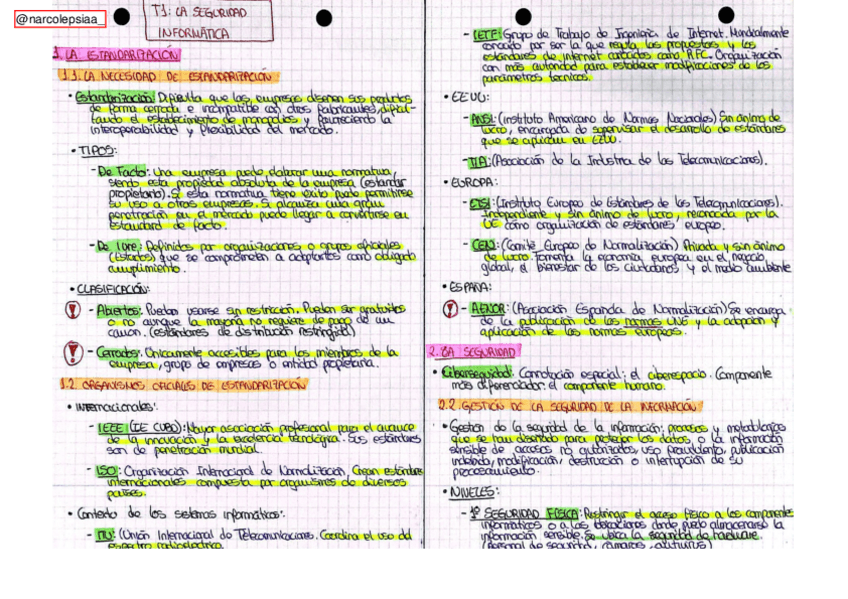 @narcolepsiaa_
T1: LA SEGURIDAD
INFORMÁTICA
1. LA ESTANDARIZACIÓN
1.1. LA NECESIDAD DE ESTANDARIZACIÓN
• Estandarización: Dificulta que las empresas diseñen sus productos
de forma cerrada e incompatible con otros fabricantes, dificul-
tando el establecimiento de monopolios y favoreciendo la
interoperabilidad y flexibilidad del mercado.
• TIPOS:
- De Facto: Una empresa puede elaborar una normativa,
siendo esta propiedad absoluta de la empresa (estándar
propietario). Si esta normativa tiene éxito puede permitirse
su uso a otras empresas. Si alcanza una gran
penetración en el mercado puede llegar a convertirse en
Estándar de facto.
- De Iure: Definidos por organizaciones o grupos oficiales
(Estados) que se comprometen a adoptarlos como obligado
cumplimiento.
• CLASIFICACIÓN:
- Abiertos: Pueden usarse sin restricción. Pueden ser gratuitos
o no aunque la mayoría no requiere de pago de un
canon. (estándares de distribución restringida)
- Cerrados: Únicamente accesibles para los miembros de la
empresa, grupo de empresas o entidad propietaria.
1.2. ORGANISMOS OFICIALES DE ESTANDARIZACIÓN
• Internacionales:
- IEEE (IE CUBO): Mayor asociación profesional para el avance
de la innovación y la excelencia tecnológica. Sus estándares
son de penetración mundial.
- ISO: Organización Internacional de Normalización, Crean estándares
internacionales compuesta por organismos de diversos
países.
• Contexto de los sistemas informáticos:
- ITU: (Unión Internacional de Telecomunicaciones. Coordina el uso del
espectro radioeléctrico.
- IETF: Grupo de Trabajo de Ingeniería de Internet. Mundialmente
conocido por ser la que regula las propuestas y los
estándares de internet conocidos como RFC. Organización
con más autoridad para establecer modificaciones de los
parámetros técnicos.
• EEUU:
- ANSI: (instituto Americano de Normas Nacionales) Sin ánimo de
lucro, encargada de supervisar el desarrollo de estándares
que se aplican en EEUU.
- TIA: (Asociación de la Industria de las Telecomunicaciones).
• EUROPA:
- ETSI: (Instituto Europeo de Estándares de las Telecomunicaciones).
Independiente y sin ánimo de lucro, reconocida por la
UE como organización de estándares europeo.
- CEN: (Comité Europeo de Normalización) Privada y sin ánimo
de lucro. Fomenta la economía europea en el negocio
global, el bienestar de los ciudadanos y el medio ambiente
• ESPAÑA:
- AENOR: (Asociación Española de Normalización) Se encarga
de la publicación de las normas UNE y la adopción y
aplicación de las normas europeas.
2. LA SEGURIDAD
• Ciberseguridad: Connotación espacial: el ciberespacio. Componente
más diferenciador: el componente humano.
2.2. GESTIÓN DE LA SEGURIDAD DE LA INFORMACIÓN
• Gestión de la seguridad de la información: procesos y metodologías
que se han diseñado para proteger los datos o la información
sensible de accesos no autorizados, uso fraudulento, publicación
indebida, modificación, destrucción o interrupción de su
procesamiento.
• NIVELES:
- 1º SEGURIDAD FÍSICA: Restringir el acceso físico a los componentes
informáticos o a las ubicaciones donde pueda almacenarse la
información sensible. Se ubica la seguridad de hardware.
(Personal de seguridad, cámaras,